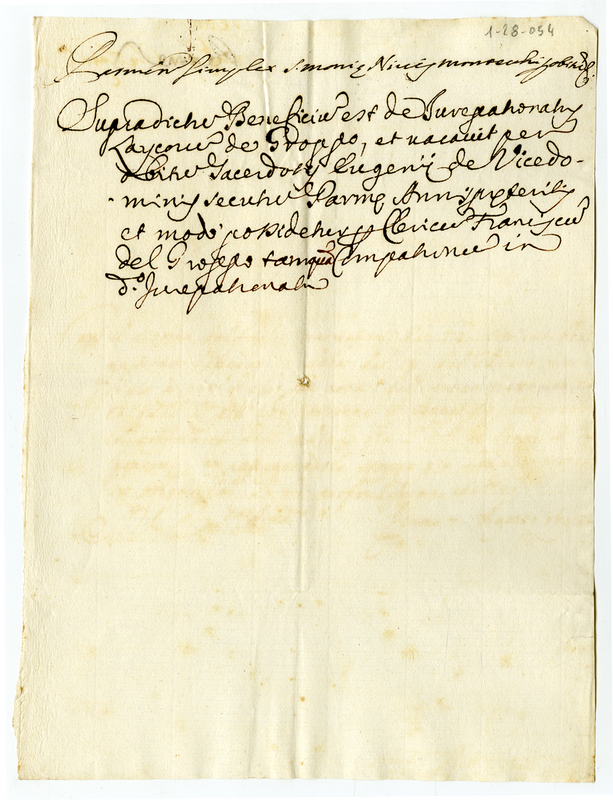 1-28-054
simplex S. Maria Nivis
Supradictu Beneficiu est de Jurepatronatu
Laycoru de Groppo, et vacavit per
obitu Sacerdotis Eugenij de Vicedo-
minis secutu Parmę Annis preteritis
et modo possidetur p Clericu Franciscu
del Groppo tamquā Compatronu in
d.º Jurepatronatu